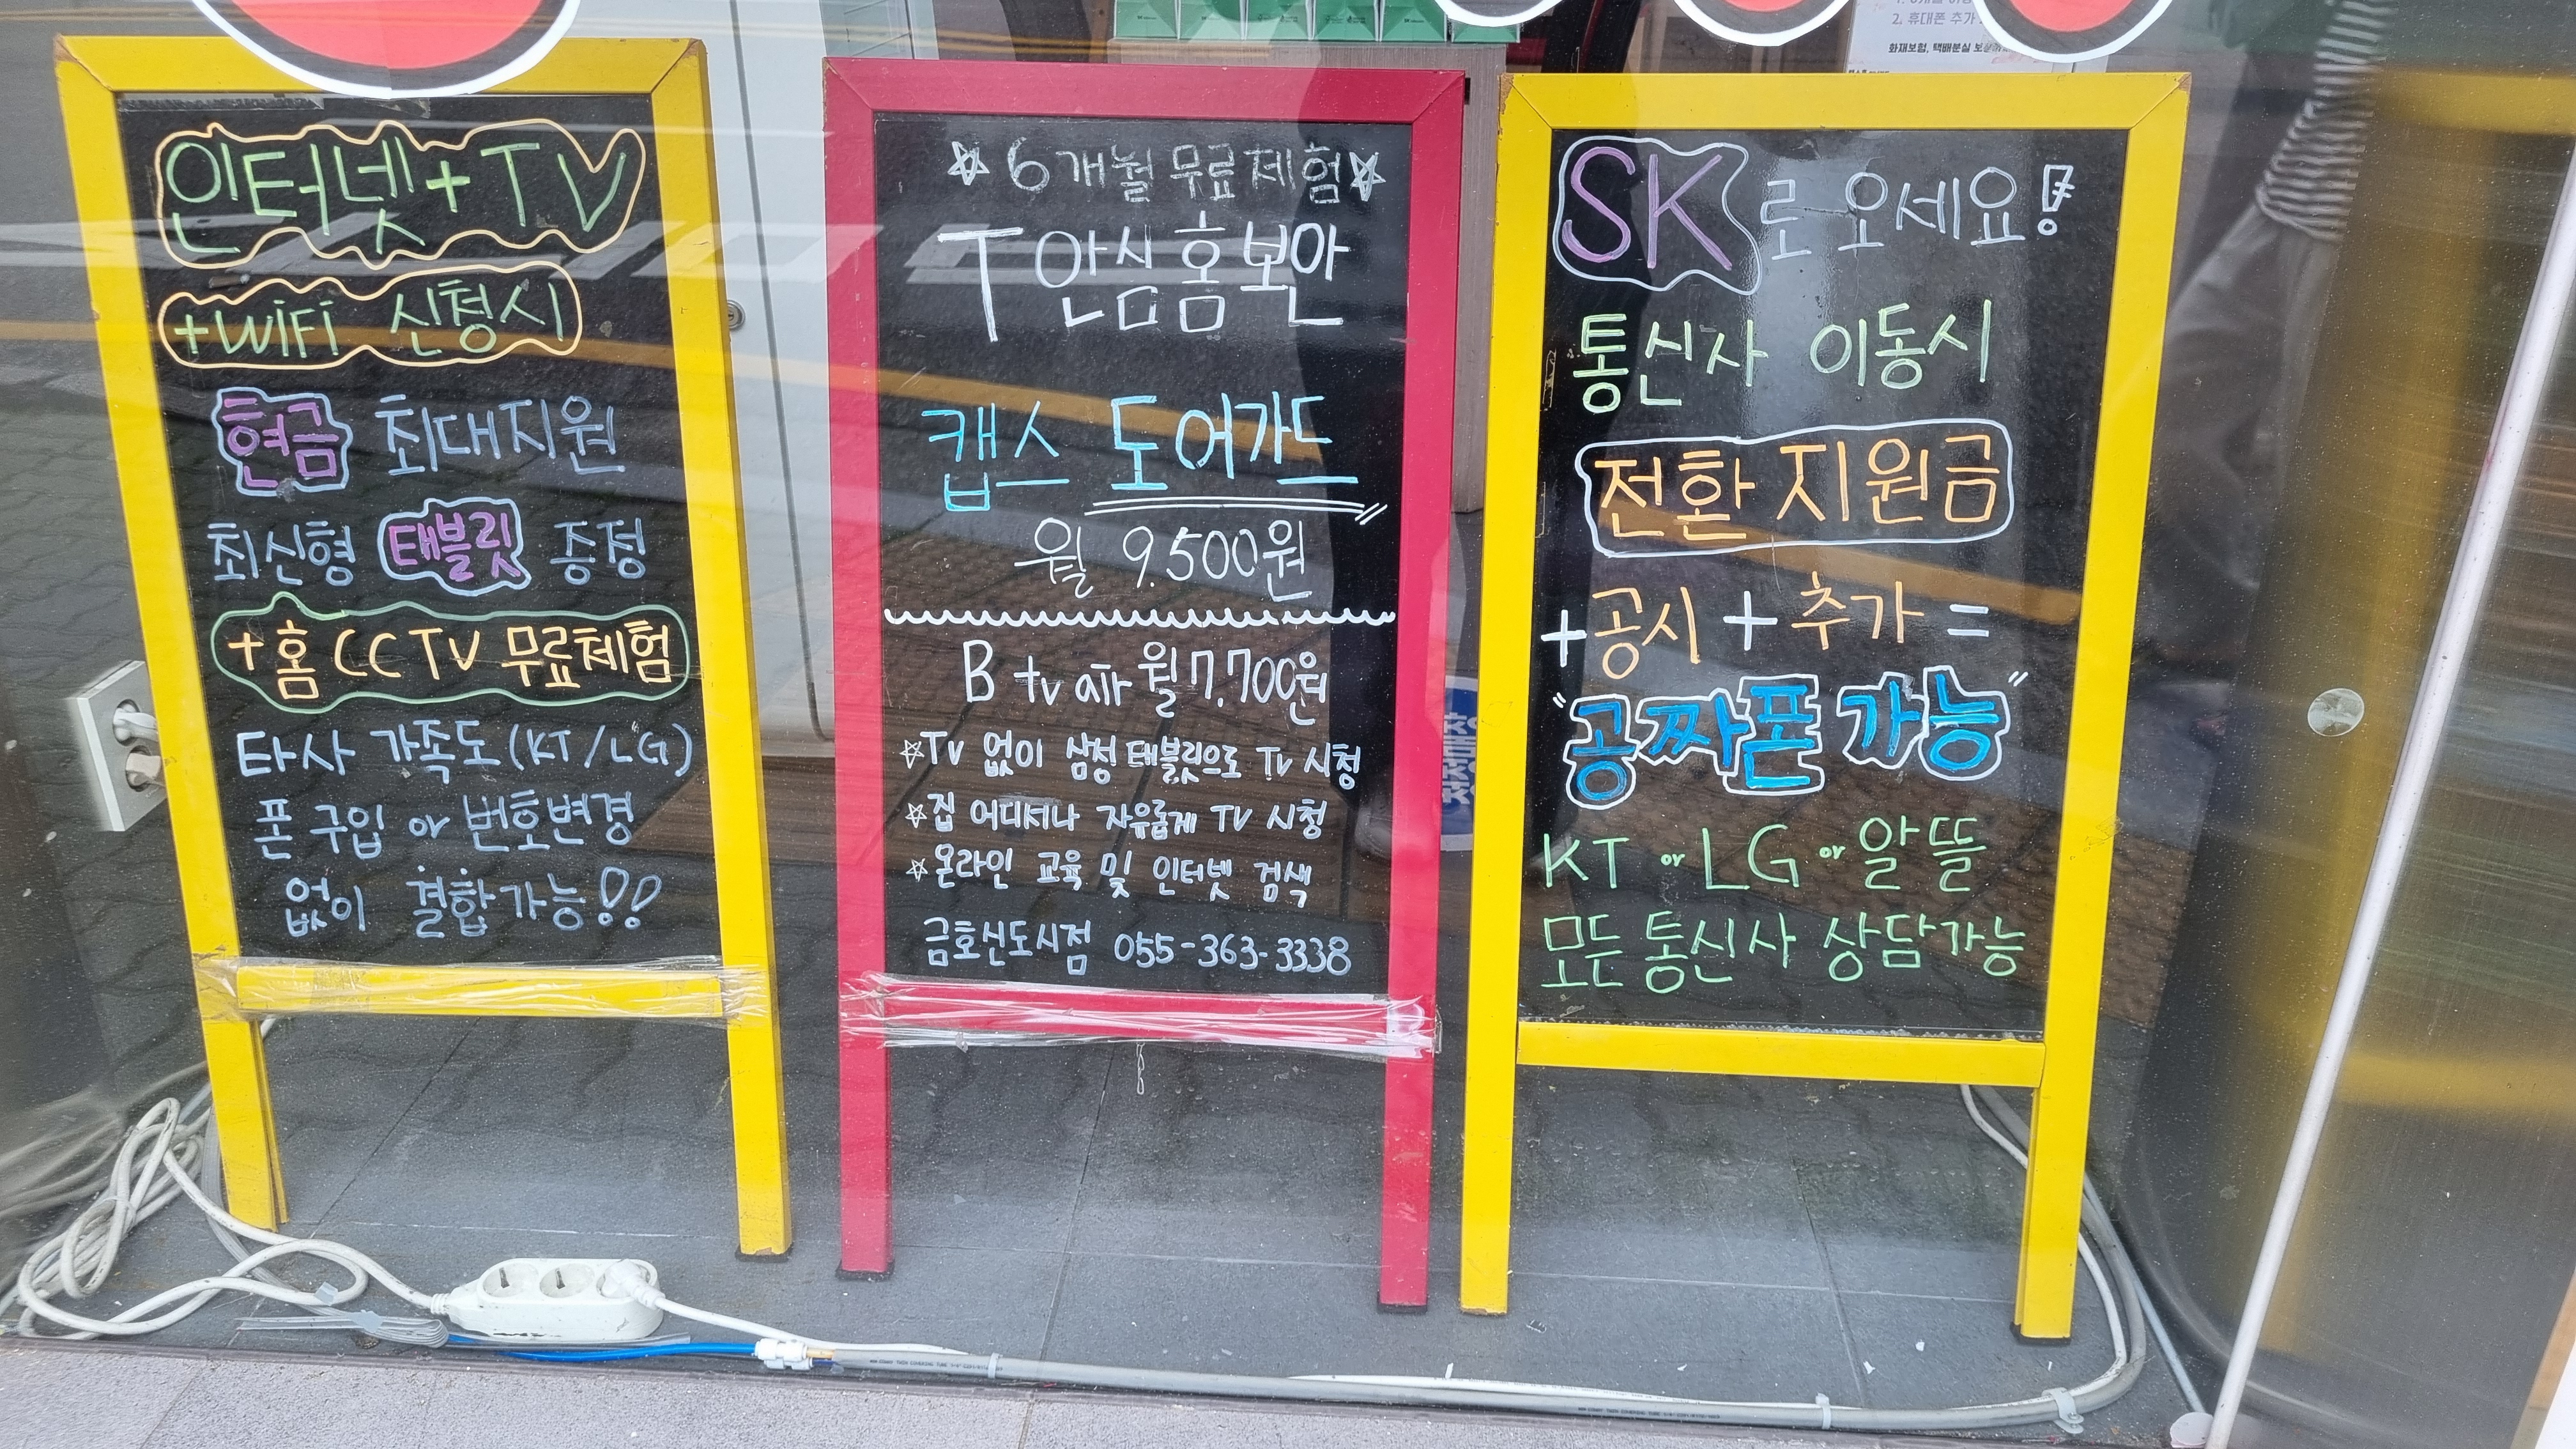 인터넷+TV
+WiFi 신청시
현금 최대지원
최신형 태블릿 증정
+홈CCTV 무료체험
타사 가족도(KT/LG)
폰 구입 or 번호변경
없이 결합가능!!
☆6개월 무료체험☆
T 안심홈보안
캡스 도어가드
월 9.500원
B tv air 월7.700원
☆TV 없이 삼성 태블릿으로 TV 시청
☆집 어디서나 자유롭게 TV 시청
☆온라인 교육 및 인터넷 검색
금호신도시점 055-363-3338
2. 휴대폰 추가
화재보험, 택배분실
SK로 오세요!
통신사 이동시
전환 지원금
+공시+추가=
"공짜폰 가능"
KT or LG or 알뜰
모든 통신사 상담가능